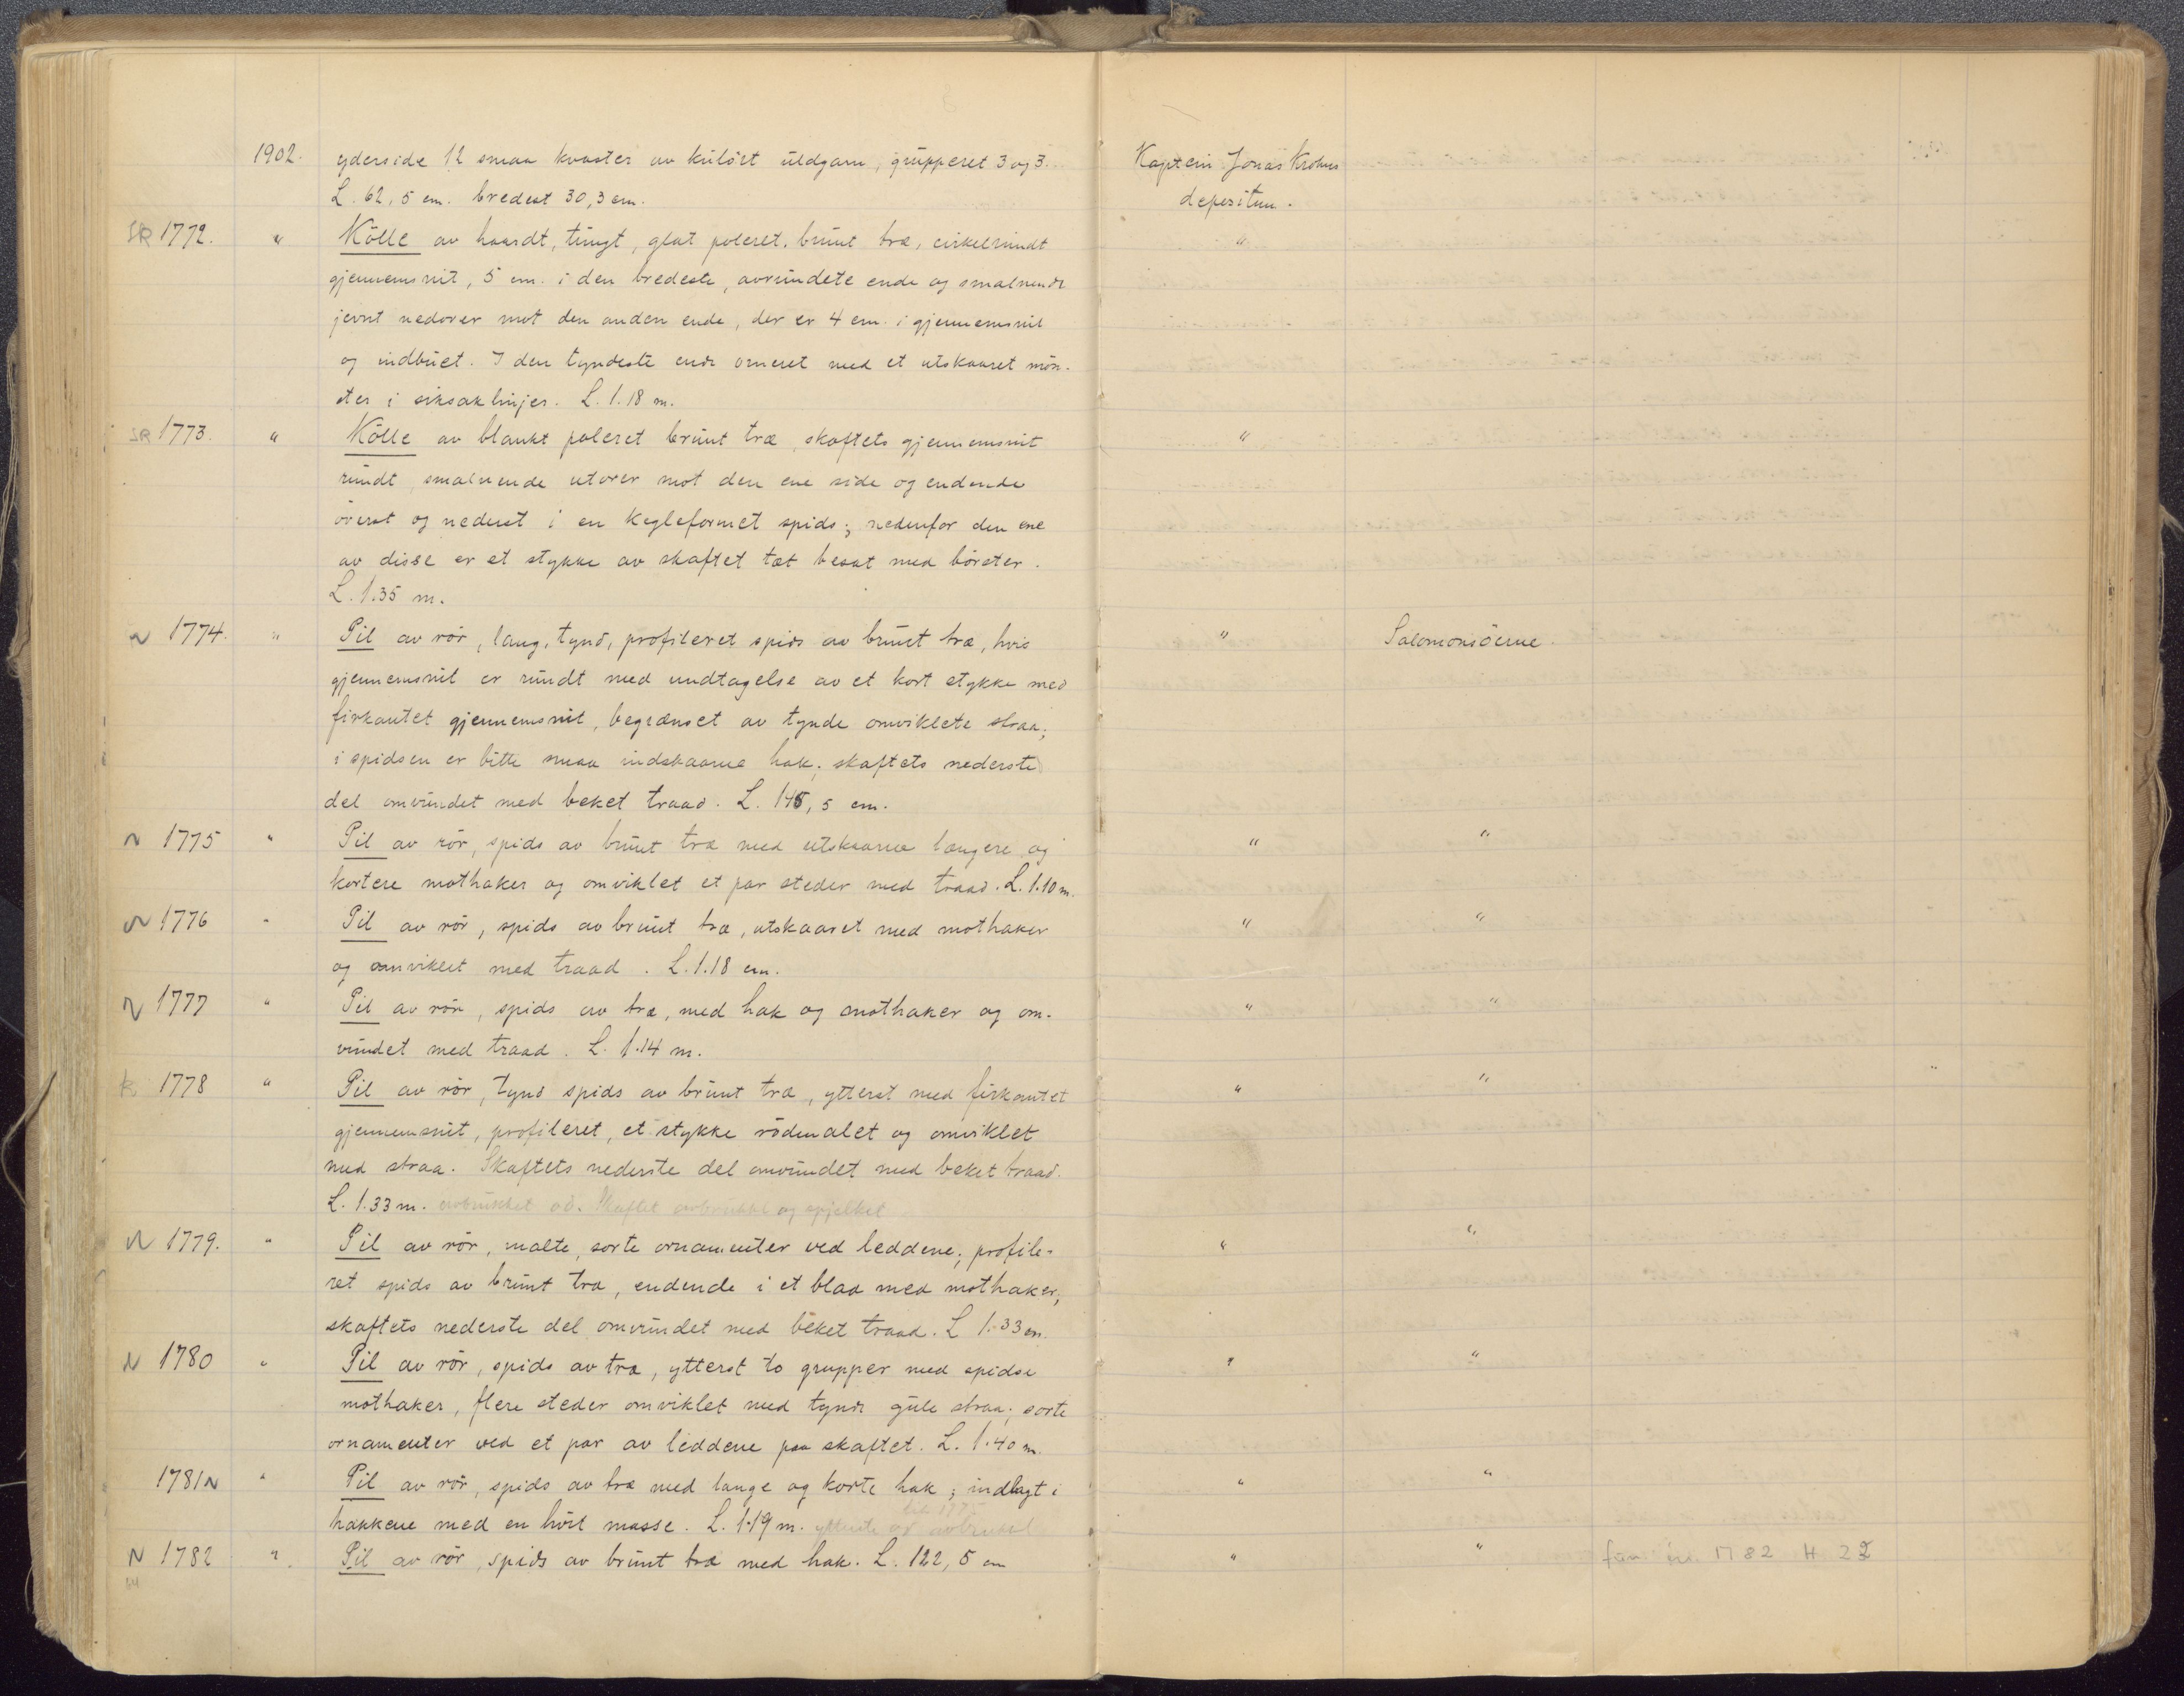 1902. yderside 12 smaa kvaster av kulört uldgarn, grupperet 3 og 3. Kaptein Jonas Krohns
L. 62,5 cm. bredest 30,3 cm. depositum.
SR 1772. " Kölle av haardt, tungt, glat poleret, brunt træ, cirkelrundt "
gjennemsnit, 5 cm. i den bredeste, avrundete ende og smalnende
jevnt nedover mot den anden ende, der er 4 cm. i gjennemsnit
og indbuet. I den tyndeste ende orneret med et utskaaret møn-
ster i siksaklinjer. L. 1.18 m.
SR 1773. " Kölle av blankt poleret brunt træ, skaftets gjennemsnit "
rundt, smalnende utover mot den ene side og endende
överst og nederst i en kegleformet spids; nedenfor den ene
av disse er et stykke av skaftet tæt besat med börster.
L. 1.35 m.
N 1774. " Pil av rör, lang, tynd, profileret spids av brunt træ, hvis " Salomonsöerne.
gjennemsnit er rundt med undtagelse av et kort stykke med
firkantet gjennemsnit, begrænset av tynde omviklete straa;
i spidsen er bitte smaa indskaarne hak; skaftets nederste
del omvundet med beket traad. L. 145,5 cm.
N 1775 " Pil av rör, spids av brunt træ med utskaarne længere og " "
kortere mothaker og omviklet et par steder med traad. L. 1.10 m.
N 1776 " Pil av rör, spids av brunt træ, utskaaret med mothaker " "
og omviklet med traad. L. 1.18 cm.
N 1777 " Pil av rör, spids av træ, med hak og mothaker og om- " "
vundet med traad. L. 1.14 m.
k 1778 " Pil av rör, tynd spids av brunt træ, ytterst med firkantet " "
gjennemsnit, profileret, et stykke rödmalet og omviklet
med straa. Skaftets nederste del omvundet med beket traad.
L. 1.33 m. avbrukket od. Skaftet avbrukket og spjelket
N 1779. " Pil av rör, malte, sorte ornamenter ved leddene; profile- " "
ret spids av brunt træ, endende i et blad med mothaker;
skaftets nederste del omvundet med beket traad. L 1.33 m.
N 1780 " Pil av rör, spids av træ, ytterst to grupper med spidse " "
mothaker, flere steder omviklet med tynde gule straa; sorte
ornamenter ved et par av leddene paa skaftet. L. 1.40 m.
1781 N " Pil av rör, spids av træ med lange og korte hak; indlagt i " "
hakkene med en hvit masse. L. 1.19 m. ytterste od avbrukket
N 1782 " Pil av rör, spids av brunt træ med hak. L. 122,5 cm " " 1782 H 22